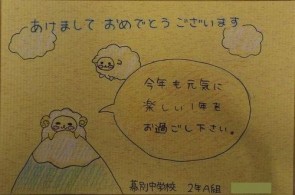 あけまして おめでとう ございます
今年も元気に
楽しい1年を
お過ごし下さい。
幕別中学校 2年A組